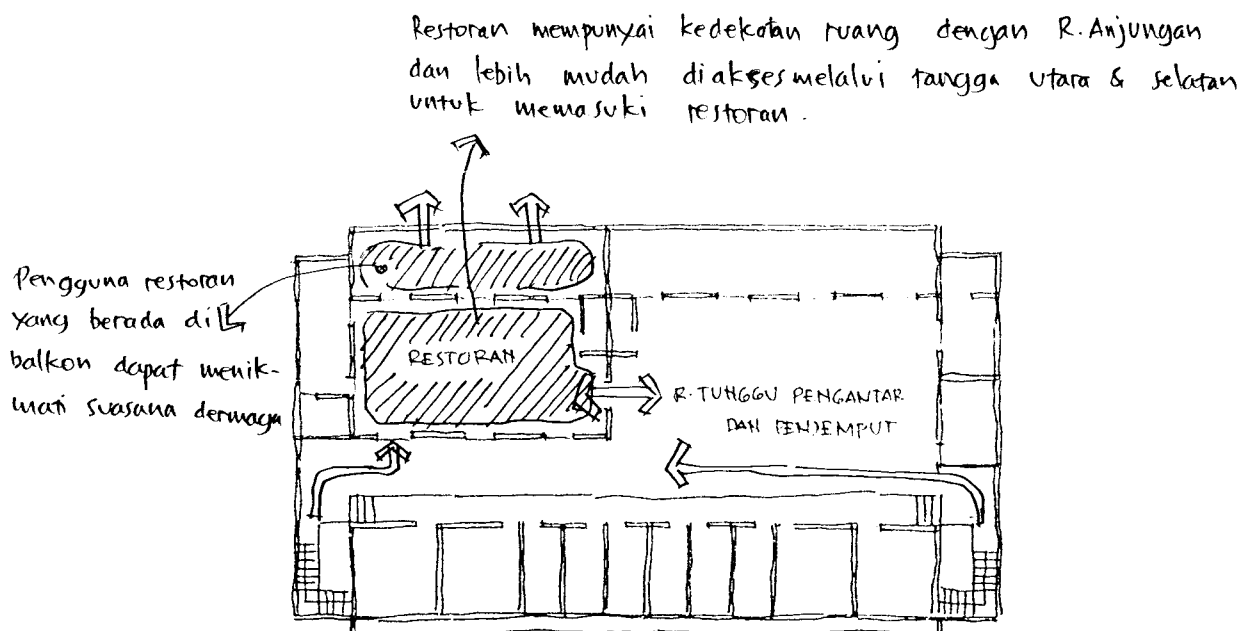 Restoran mempunyai kedekatan ruang dengan R. Anjungan
dan lebih mudah diakses melalui tangga utara & selatan
untuk memasuki restoran.
Pengguna restoran
yang berada di
balkon dapat menik-
mati suasana dermaga
RESTORAN
R. TUNGGU PENGANTAR
DAN PENJEMPUT